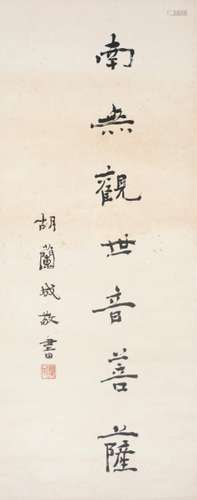 南無觀世音菩薩
胡蘭成敬書